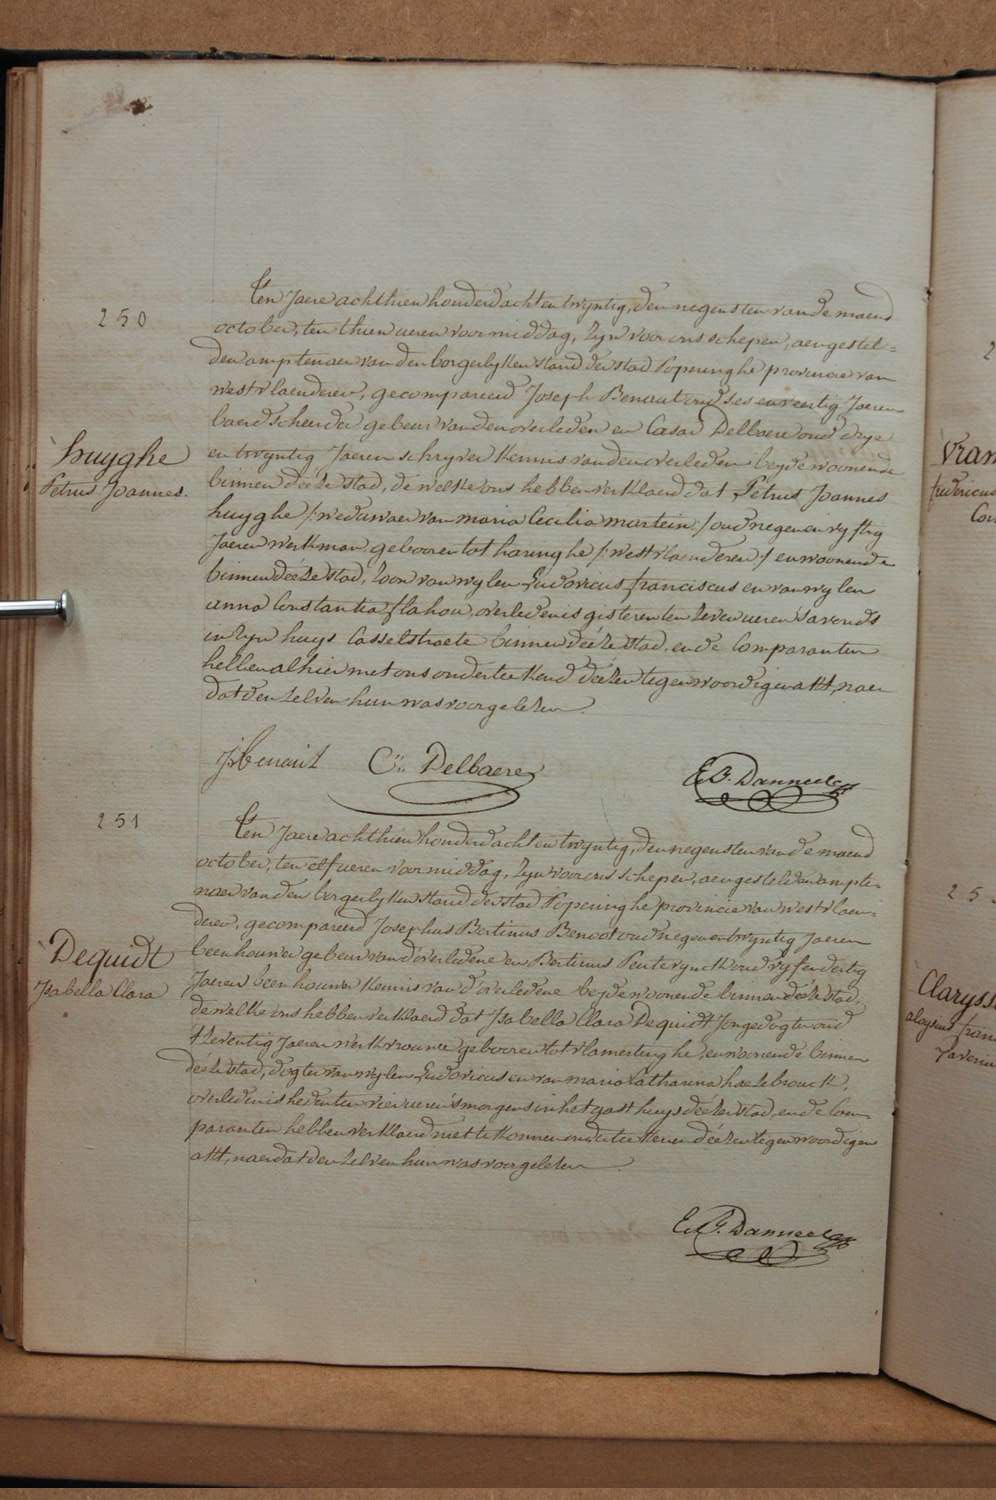 250
huyghe
Petrus Joannes.
Ten Jaere achthien honderd acht en twyntig, den negensten van de maend
october, ten thien ueren voormiddag, zyn voor ons schepen, aengestel=
den amptenaer van den borgerlyken stand der stad Poperinghe provincie van
westvlaenderen, gecompareerd Joseph Benaut oud ses en veertig Jaeren
baerdscheerder gebeur van den overleden en Cesar Delbaere oud drye
en twyntig Jaeren schryver kennis van den overleden beyde woonende
binnen deéze stad, de welke ons hebben verklaerd dat Petrus Joannes
huyghe /: weduwaer van maria Cecilia martein :/ oud negen en vyftig
Jaeren werkman gebooren tot haringhe /: westvlaenderen :/ en woonende
binnen deéze stad, zoon van wylen Ludovicus franciscus en van wylen
anna Constantia flahou, overleden is gisteren ten zeven ueren s'avonds
in zyn huys Casselstraete binnen deéze stad, en de Comparanten
hebben alhier met ons onderteekend deézen tegenwoordigen akt, naer
dat den zelven hun was voorgelezen.
J: Benaut C: Delbaere E. B. Danneel
251
Dequidt
Isabella Clara
Ten Jaere achthien honderd acht en twyntig, den negensten van de maend
october, ten elf ueren voormiddag, zyn voor ons schepen, aengestelden ampte-
naer van den borgerlyken stand der stad Poperinghe provincie van westvlaen-
deren, gecompareerd Josephus Bertinus Benoot oud negen en twyntig Jaeren
beenhouwer gebeur van d'overledene en Bertinus Peuterynck oud vyf en dertig
Jaeren beenhouwer kennis van d'overledene beyde woonende binnen deéze stad,
de welke ons hebben verklaerd dat Isabella Clara Dequidt Jonge dogter oud
t'zeventig Jaeren werkvrouwe gebooren tot vlamertinghe en woonende binnen
deéze stad, dogter van wylen Ludovicus en van maria Catharina hazebrouck,
overleden is heden ten vier ueren s'morgens in het gasthuys deézer stad, en de Com-
paranten hebben verklaerd niet te konnen onderteekenen deézen tegenwoordigen
akt, naer dat den zelven hun was voorgelezen.
E. B. Danneel
Claryss
aloysius fran